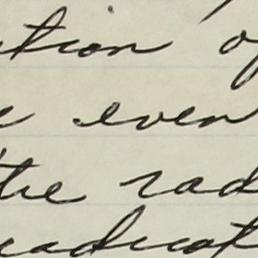 tion of
e even
the rad
radicat